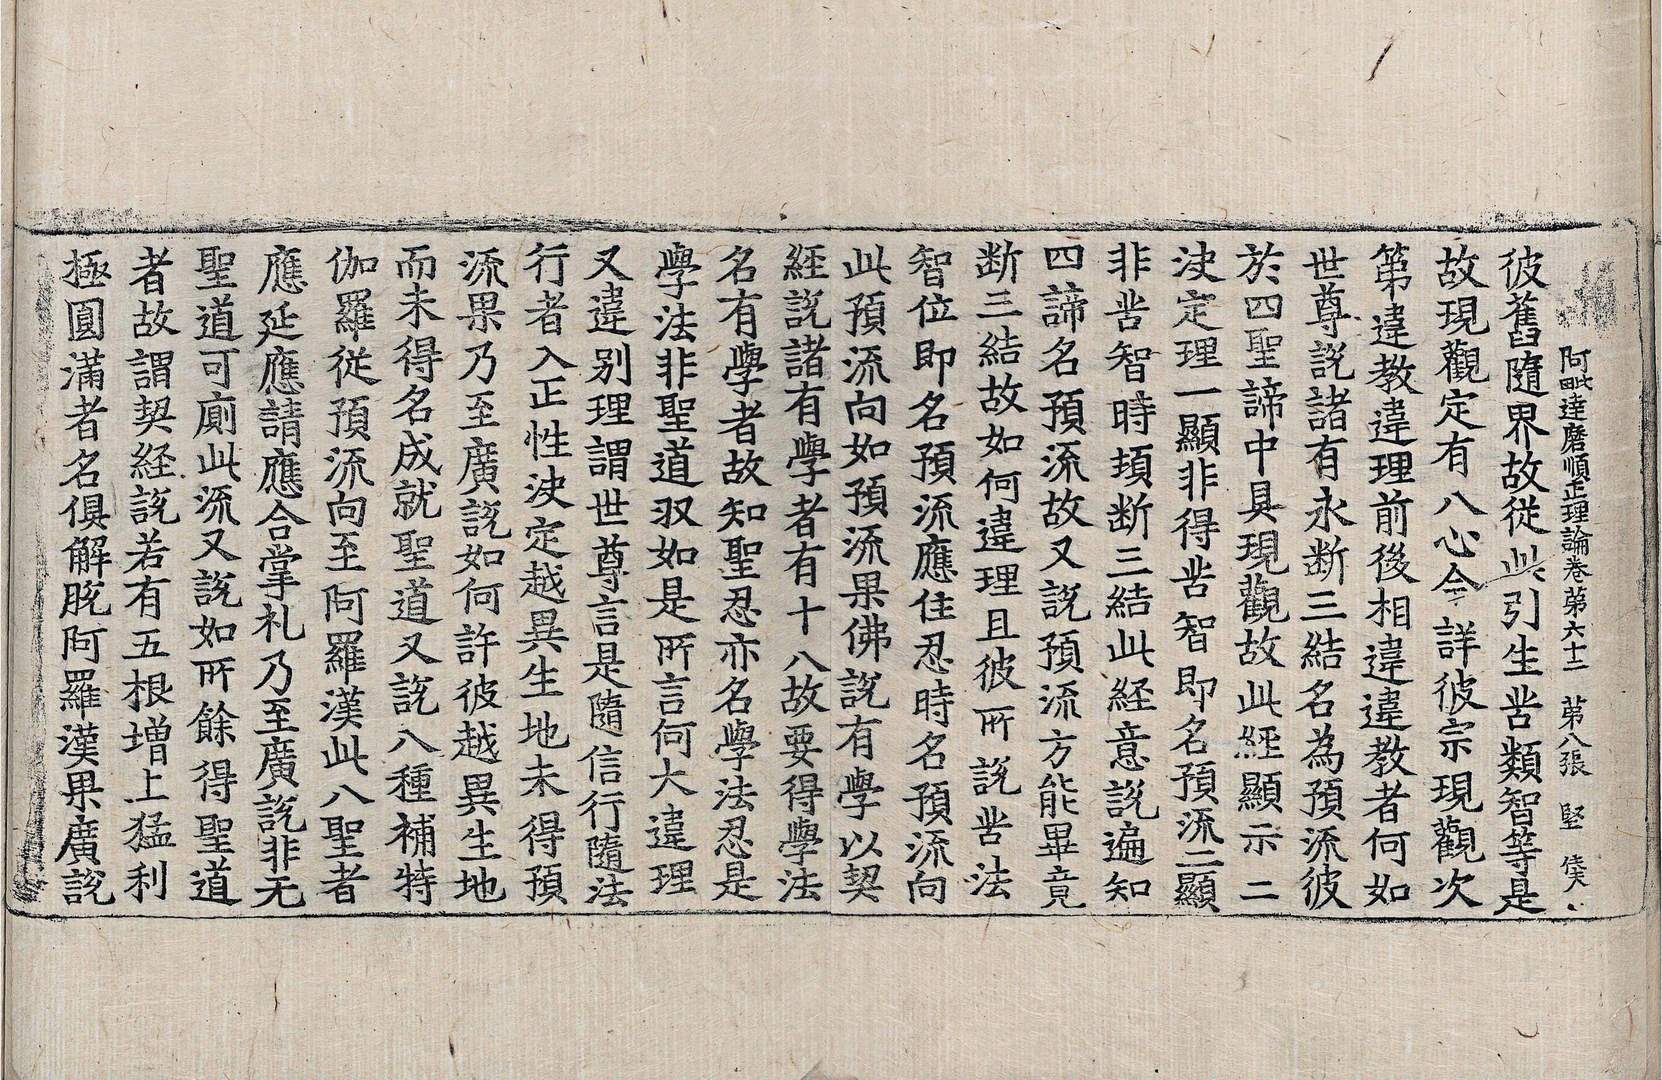 阿毗達磨順正理論卷第六十二 第八張 堅
彼舊隨界故從此引生苦類智等是
故現觀定有八心今詳彼宗現觀次
第違教違理前後相違違教者何如
世尊說諸有永斷三結名為預流彼
於四聖諦中具現觀故此經顯示二
決定理一顯非得苦智即名預流二顯
非苦智時頓斷三結此經意說遍知
四諦名預流故又說預流方能畢竟
斷三結故如何違理且彼所說苦法
智位即名預流應住忍時名預流向
此預流向如預流果佛說有學以契
經說諸有學者有十八故要得學法
名有學者故知聖忍亦名學法忍是
學法非聖道攻如是所言何大違理
又違別理謂世尊言是隨信行隨法
行者入正性決定越異生地未得預
流果乃至廣說如何許彼越異生地
而未得名成就聖道又說八種補特
伽羅從預流向至阿羅漢此八聖者
應延應請應合掌礼乃至廣說非无
聖道可廁此流又說如所餘得聖道
者故謂契經說若有五根增上猛利
極圓滿者名俱解脫阿羅漢果廣說